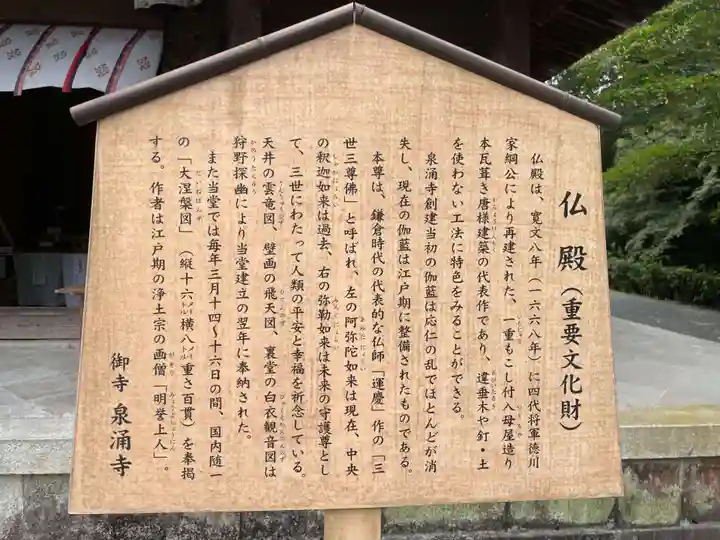 仏殿(重要文化財)
仏殿は、寛文八年(一六六八年)に四代将軍徳川
家綱公により再建された、一重もこし付入母屋造り
本瓦葺き唐様建築の代表作であり、違垂木や釘・土
を使わない工法に特色をみることができる。
泉涌寺創建当初の伽藍は応仁の乱でほとんどが消
失し、現在の伽藍は江戸期に整備されたものである。
本尊は、鎌倉時代の代表的な仏師「運慶」作の「三
世三尊佛」と呼ばれ、左の阿弥陀如来は現在、中央
の釈迦如来は過去、右の弥勒如来は未来の守護尊とし
て、三世にわたって人類の平安と幸福を祈念している。
天井の雲竜図、壁画の飛天図、裏堂の白衣観音図は
狩野探幽により当堂建立の翌年に奉納された。
また当堂では毎年三月十四〜十六日の間、国内随一
の「大涅槃図」(縦十六㍍横八㍍重さ百貫)を奉掲
する。作者は江戸期の浄土宗の画僧「明誉上人」。
御寺 泉涌寺